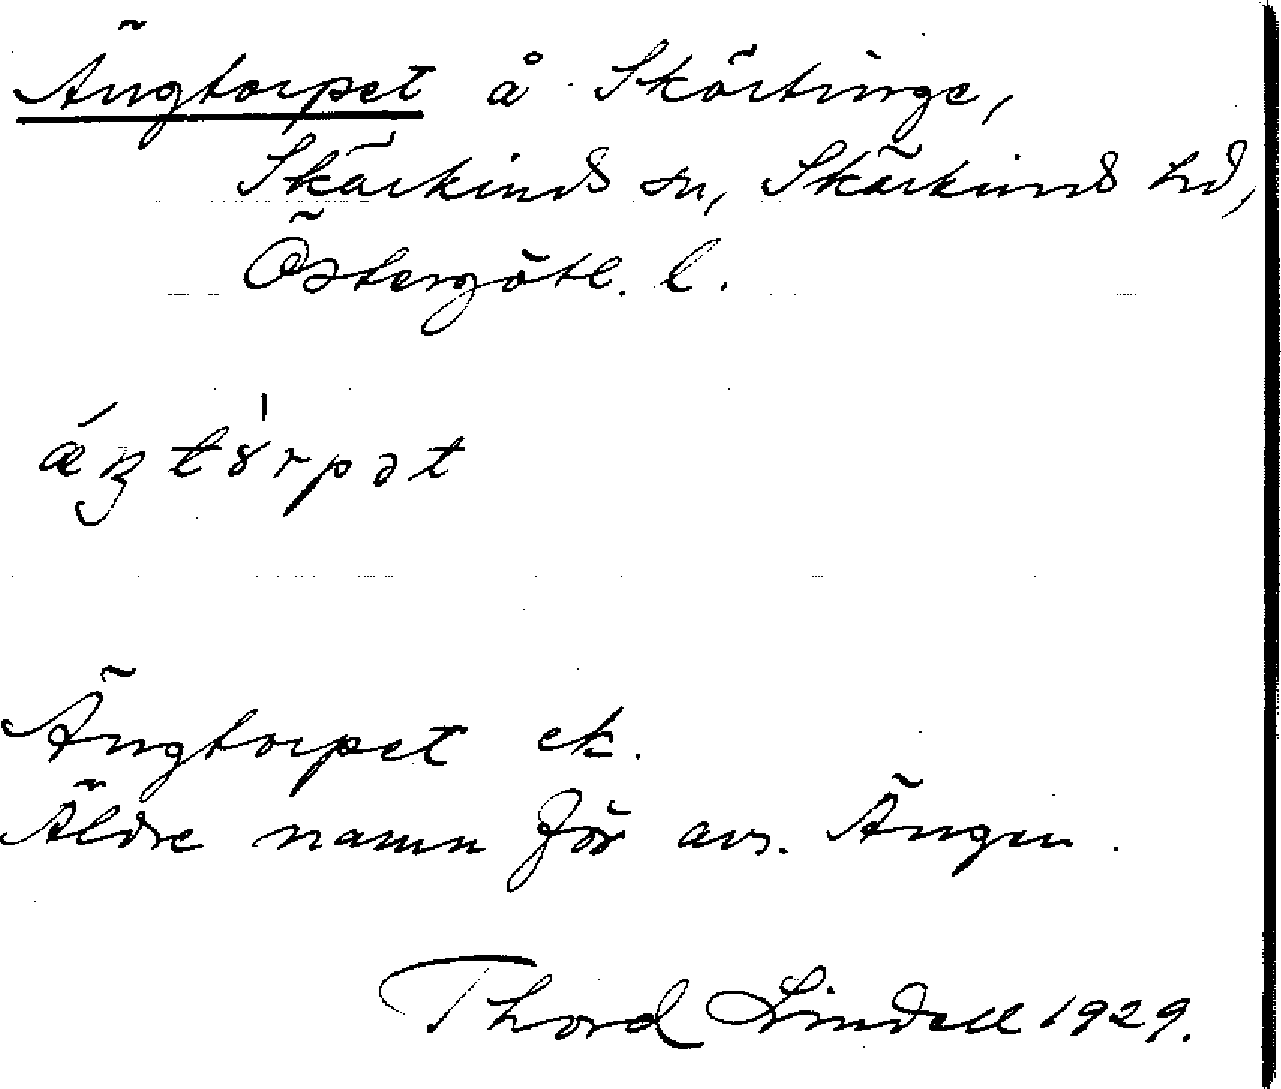 Ängtorpet å Skörtinge,
Skärkinds sn, Skärkinds hd,
Östergötl. l.
ǽŋtȣ́rpət
Ängtorpet ek.
Äldre namn för avs. Ängen.
Thord Lindell 1929.